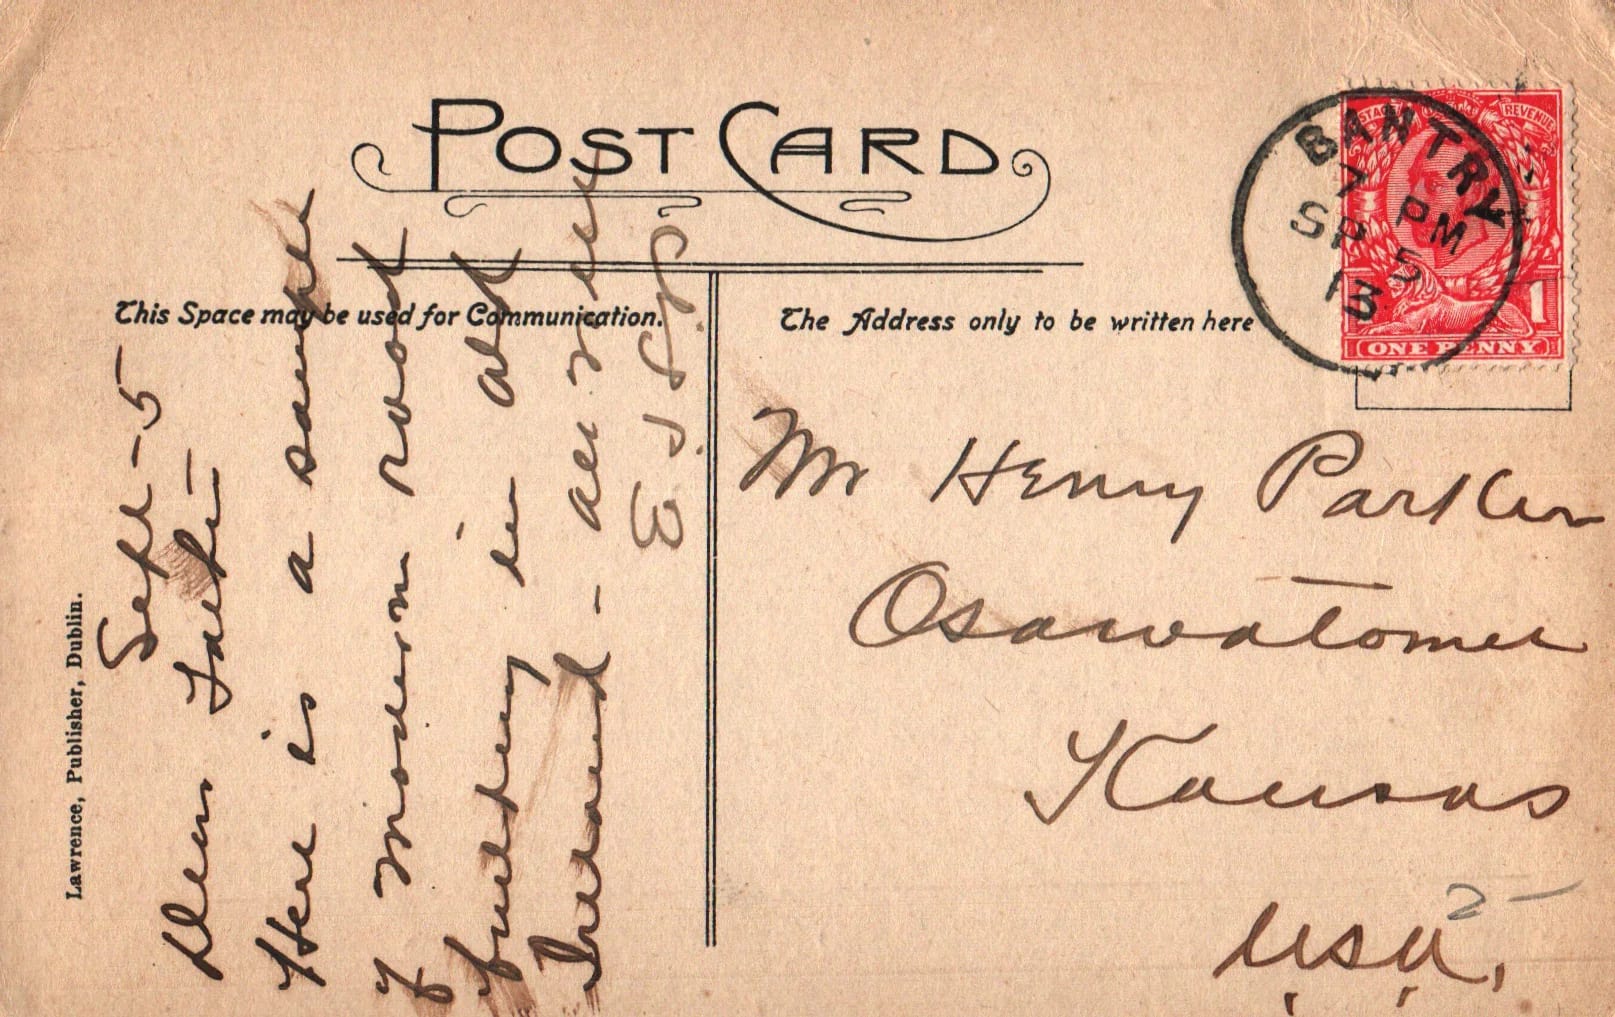 POST CARD
This Space may be used for Communication.
The Address only to be written here
POSTAGE REVENUE
ONE PENNY
1
BANTRY
7 PM
SP 5
13
Lawrence, Publisher, Dublin.
Sept - 5
Dear
Here is a sample
of modern road
building in
Ireland -
Mr Henry Parker
Osawatomie
Kansas
U.S.A.
2 -